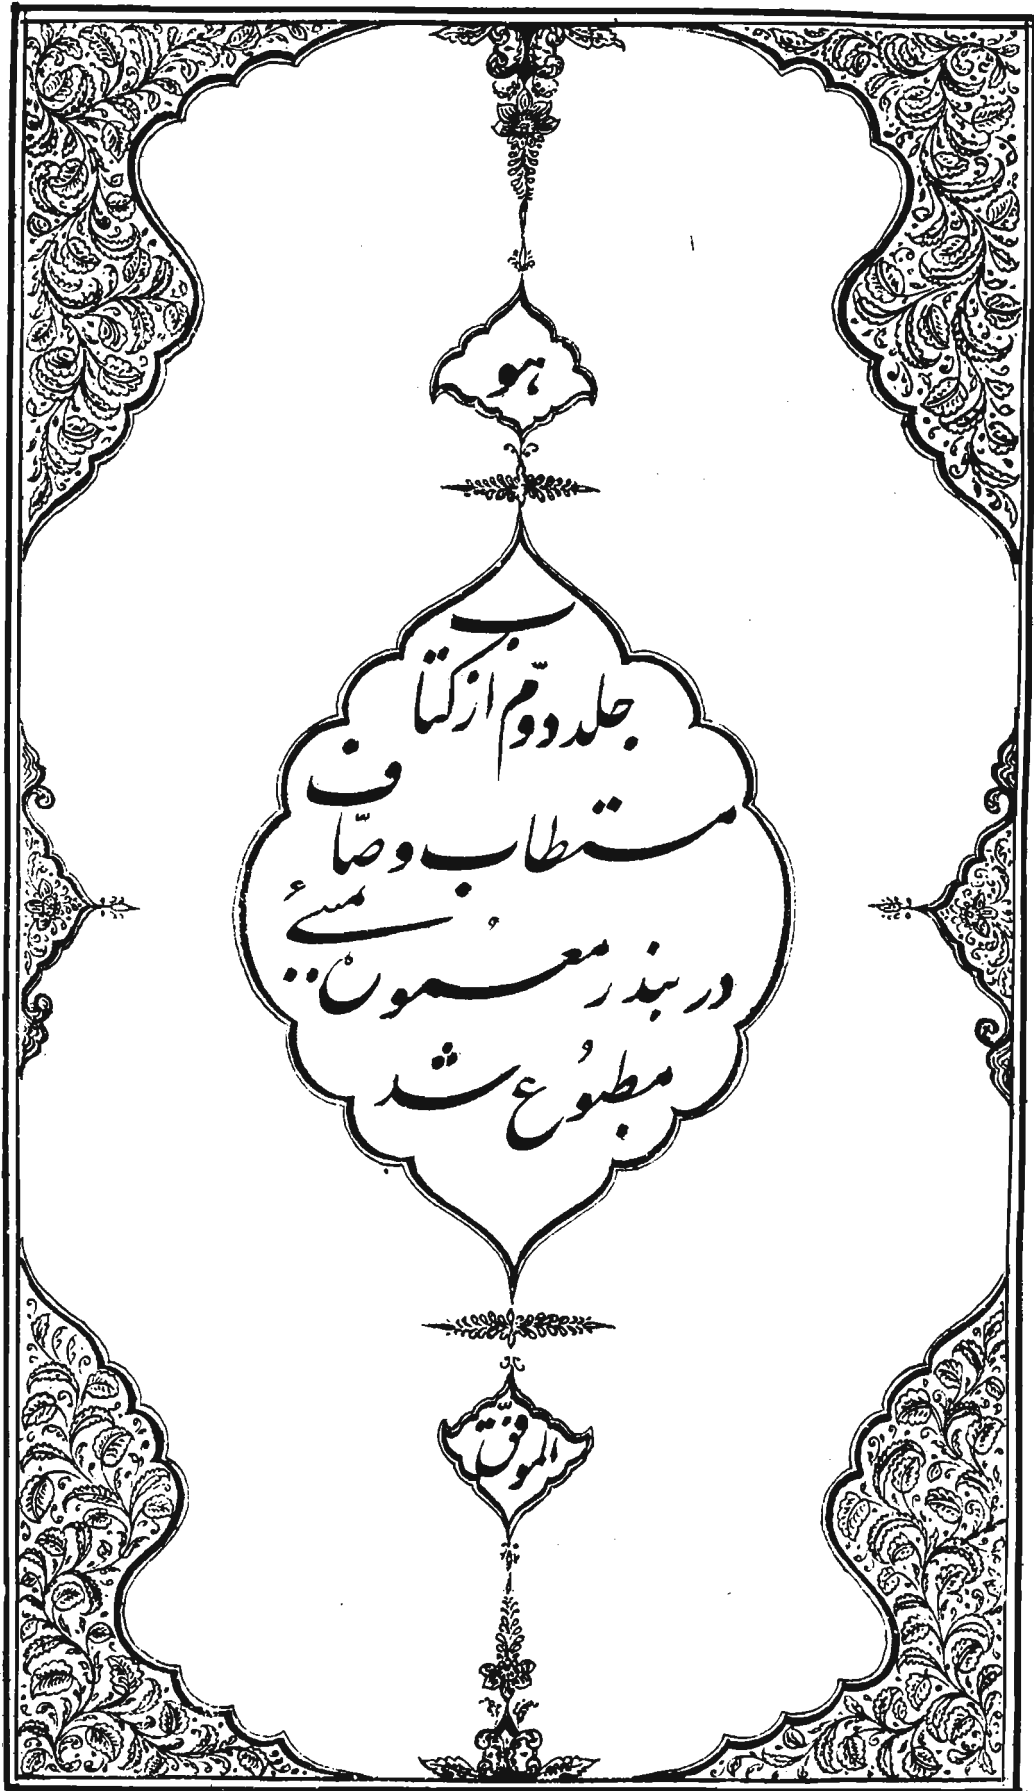 هو
جلد دوّم از کتاب
مستطاب وصّاف
در بندر معمورهٔ بمبئی
مطبُوع شد
الموفّق